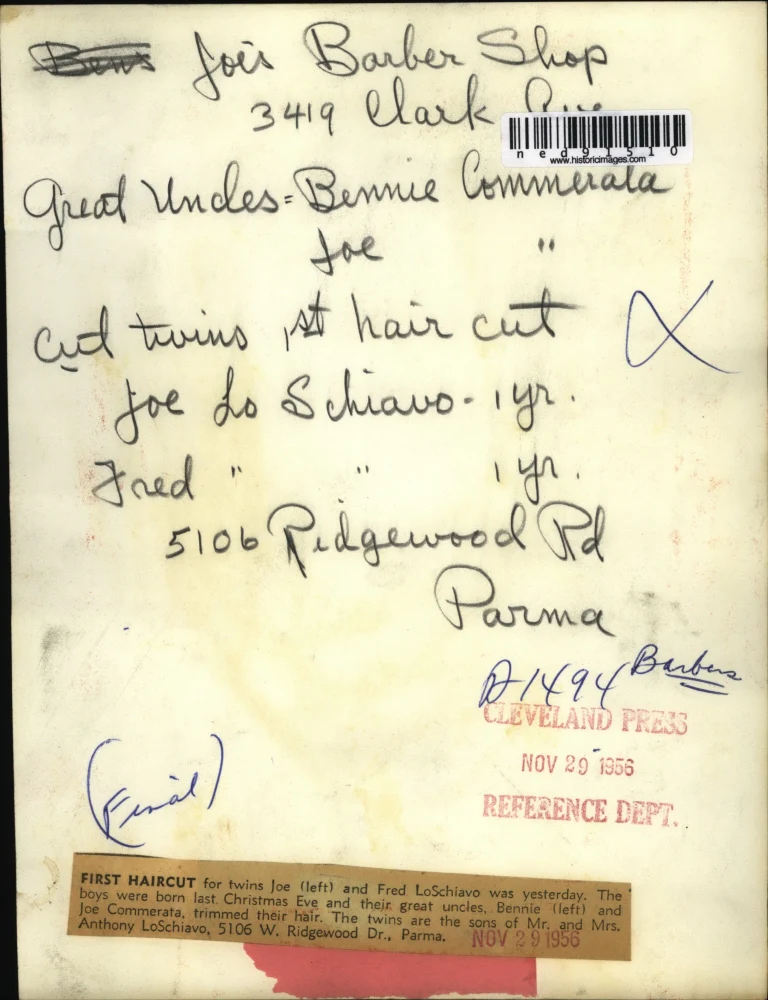 Ben's Joe's Barber Shop
3419 Clark Ave
ned91510
www.historicimages.com
Great Uncles = Bennie Commerata
Joe "
Cut twins 1st hair cut
Joe Lo Schiavo - 1 yr.
Fred " " 1 yr.
5106 Ridgewood Rd
Parma
A-1494 Barbers
CLEVELAND PRESS
NOV 29 1956
REFERENCE DEPT.
(Final)
FIRST HAIRCUT for twins Joe (left) and Fred LoSchiavo was yesterday. The
boys were born last Christmas Eve and their great uncles, Bennie (left) and
Joe Commerata, trimmed their hair. The twins are the sons of Mr. and Mrs.
Anthony LoSchiavo, 5106 W. Ridgewood Dr., Parma. NOV 29 1956